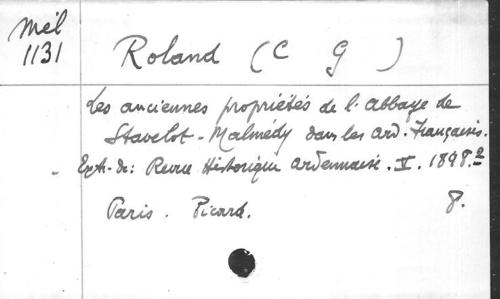 Mél
1131
Roland (C G )
Les anciennes propriétés de l'abbaye de
Stavelot-Malmédy dans les Ard. Françaises.
Extr. de: Revue Historique ardennaise. V. 1898.
Paris. Picard. 8.